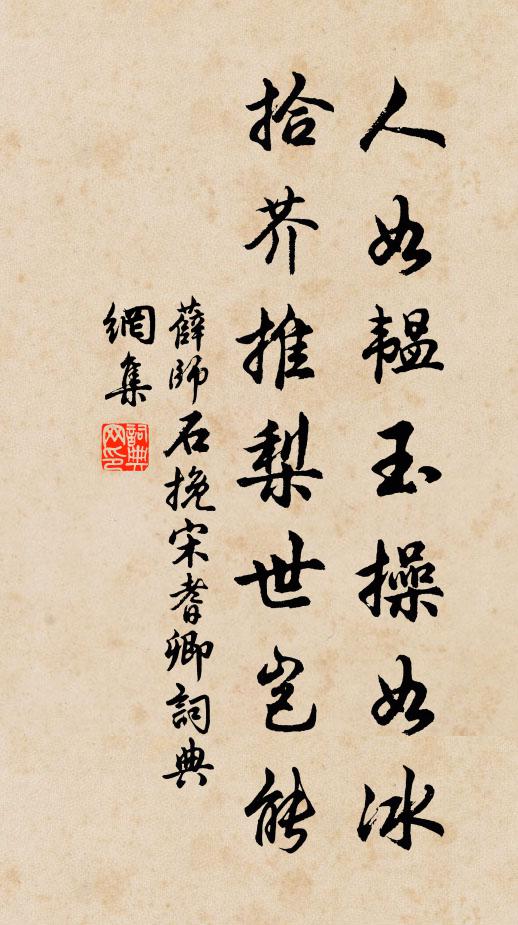 人如韞玉操如冰
拾芥推梨世豈能
薛師石挽宋耆卿詞典
網集
詞典網印